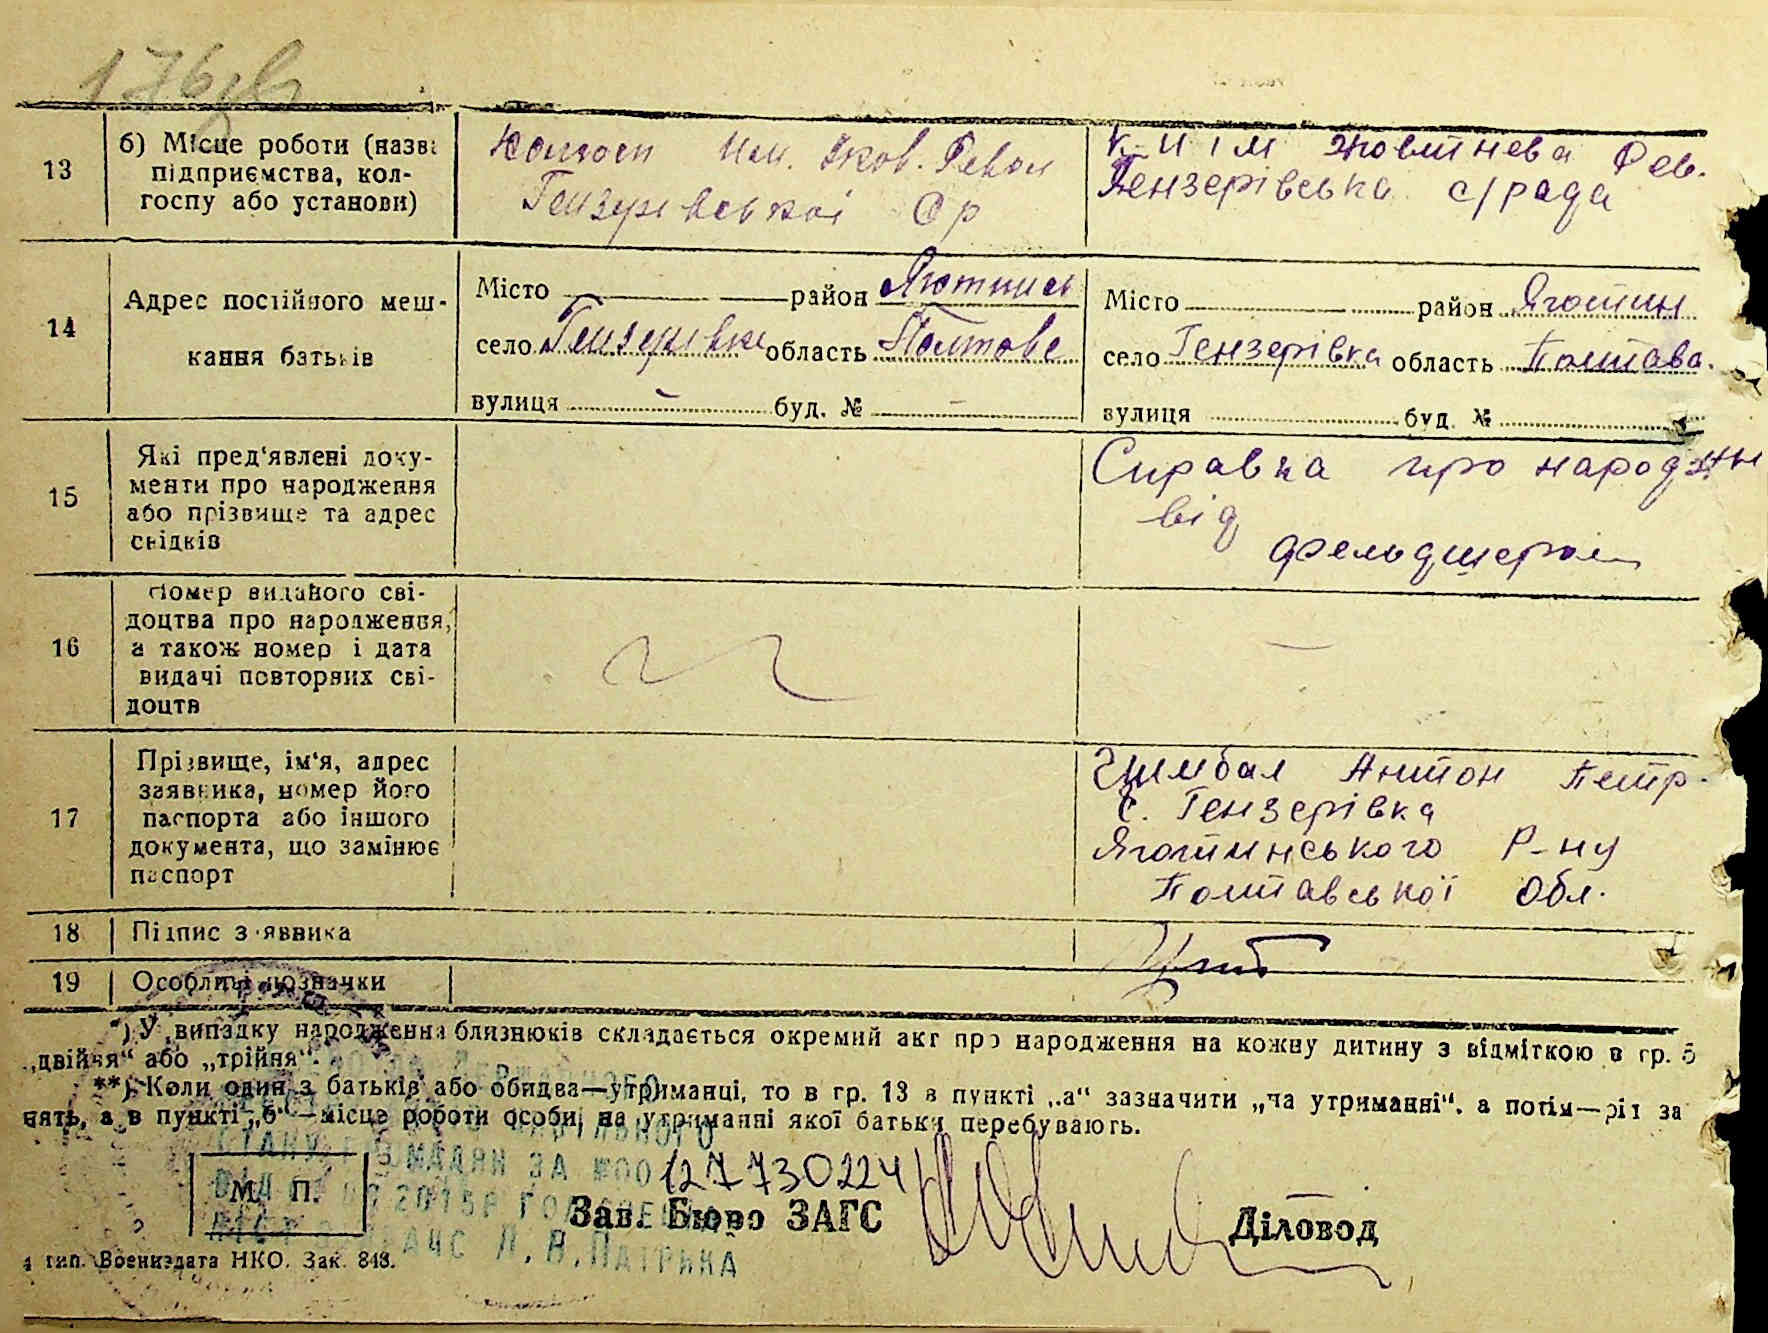 176зв
13
б) Місце роботи (назва
підприємства, кол-
госпу або установи)
Колгосп Им. Жов. Револ
Гензерівської Ср
к-п ім Жовтнева Рев.
Гензерівська с/рада
14
Адрес постійного меш-
кання батьків
Місто район Яготинсь
село Гензерівка область Полтавс
вулиця - буд. № -
Місто район Яготин
село Гензерівка область Полтава.
вулиця буд. №
15
Які пред'явлені доку-
менти про народження
або прізвище та адрес
свідків
Справка про народжен
від
фельдшера
16
Номер виданого сві-
доцтва про народження,
а також номер і дата
видачі повторних сві-
доцтв
17
Прізвище, ім'я, адрес
заявника, номер його
паспорта або іншого
документа, що замінює
паспорт
Цимбал Антон Петр.
с. Гензерівка
Яготинського Р-ну
Полтавської Обл.
18
Підпис заявника
19
Особливі позначки
*) У випадку народження близнюків складається окремий акт про народження на кожну дитину з відміткою в гр. 5
„двійня“ або „трійня“.
**) Коли один з батьків або обидва—утриманці, то в гр. 13 в пункті „а“ зазначити „на утриманні“, а потім—рід за
нять, а в пункті „б“—місце роботи особи, на утриманні якої батьки перебувають.
СТАНУ ГРОМАДЯН ЗА №00127730224
М. П.
Зав. Бюро ЗАГС
Діловод
4 тип. Воениздата НКО. Зак. 848.